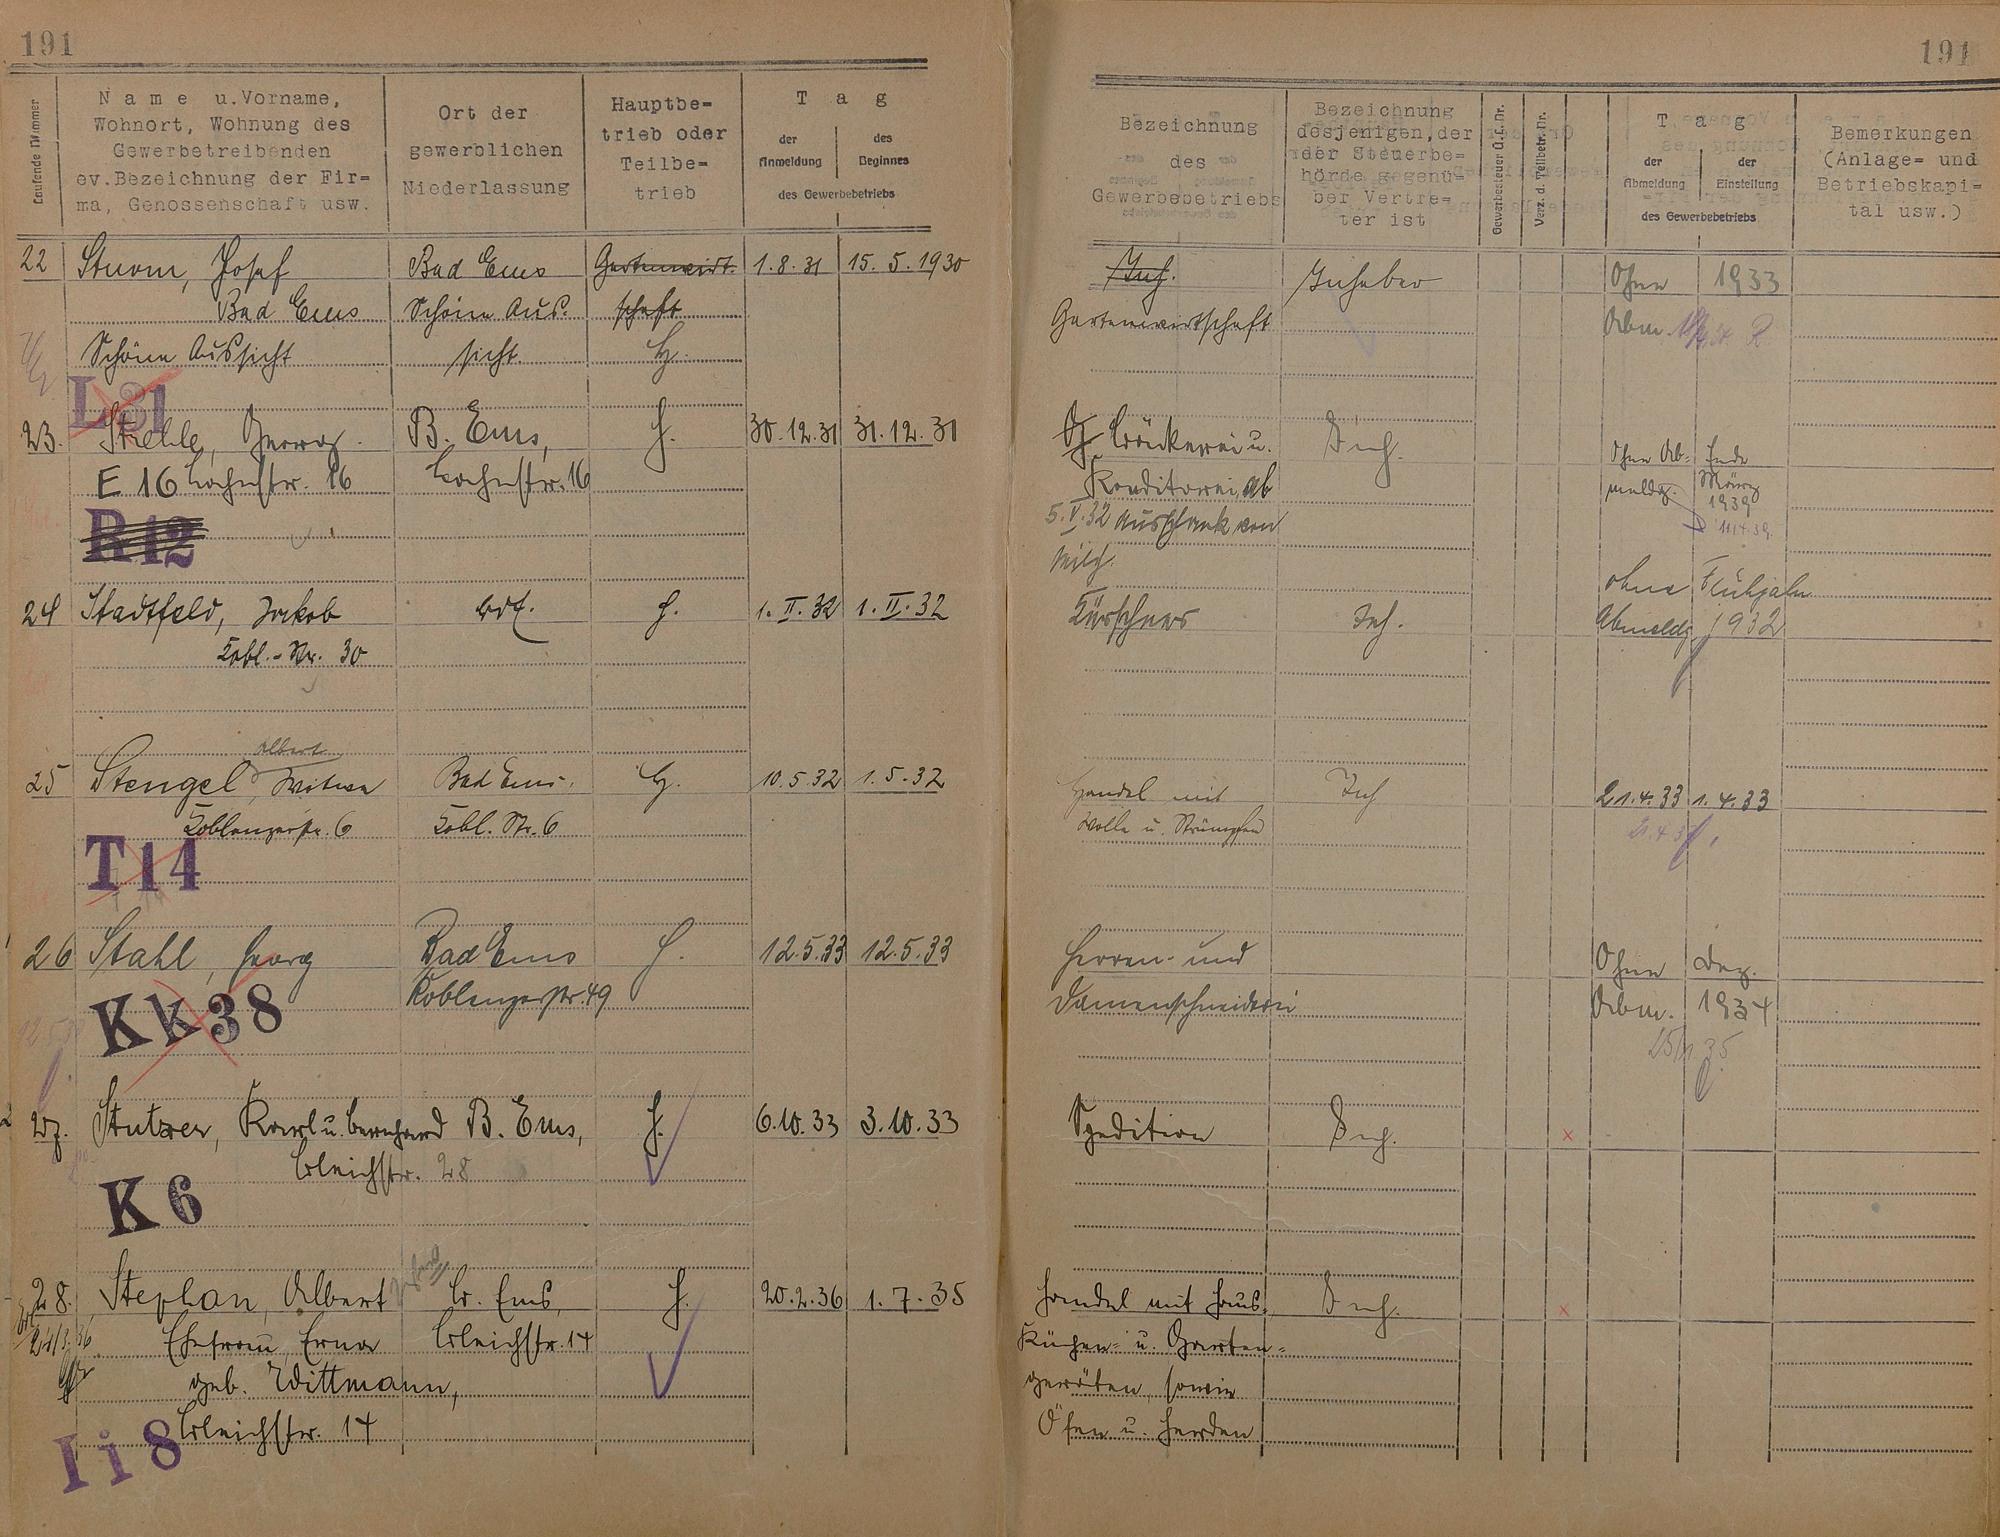 191
191
Laufende Nummer
Name u. Vorname,
Wohnort, Wohnung des
Gewerbetreibenden
ev. Bezeichnung der Fir-
ma, Genossenschaft usw.
Ort der
gewerblichen
Niederlassung
Hauptbe-
trieb oder
Teilbe-
trieb
Tag
der Anmeldung
des Beginnes
des Gewerbebetriebs
Bezeichnung
des
Gewerbebetriebs
Bezeichnung
desjenigen, der
der Steuerbe-
hörde gegenü-
ber Vertre-
ter ist
Gewerbesteuer Ü.L.Nr.
Verz. d. Teilbetr. Nr.
Tag
der Abmeldung
der Einstellung
des Gewerbebetriebs
Bemerkungen
(Anlage- und
Betriebskapi-
tal usw.)
22 Sturm, Josef Bad Ems Gartenwirt- 1.8.31 15.5.1930 Inh. Inhaber Ohne 1933
Bad Ems Schöne Aus- schaft Gartenwirtschaft Abm.
Schöne Aussicht sicht H.
L 31
23. Strehle, Georg B. Ems, H. 30.12.31 31.12.31 Bäckerei u. Inh. Ohne Ab- Ende
E 16 Bahnstr. 16 Bahnstr. 16 Konditorei, ab meldg. März
1939
R 12 5.V.32 Ausschank von 11.4.39.
Milch.
24 Stadtfeld, Jakob H. 1.II.32 1.II.32 Kürschner Inh. ohne Frühjahr
Kobl.-Str. 30 Abmeldg. 1932
Albert
25 Stengel, Witwe Bad Ems. H. 10.5.32 1.5.32 Handel mit Inh 21.4.33 1.4.33
Koblenzerstr. 6 Kobl. Str. 6 Wolle u. Strümpfen
T 14
26 Stahl, Georg Bad Ems H. 12.5.33 12.5.33 Herren- und Ohne Dez.
Koblenzerstr. 49 Damenschneiderei Abm. 1934
Kk 38
27. Stutzer, Karl u. Bernhard B. Ems, H. 6.10.33 3.10.33 Spedition Inh. x
Bleichstr. 28
K 6
28. Stephan, Albert B. Ems, H. 20.2.36 1.7.35 Handel mit Haus- Inh. x
Ehefrau, Erna Bleichstr. 14 Küchen- u. Garten-
geb. Wittmann, geräten, sowie
Bleichstr. 14 Öfen u. Herden
Ii 8